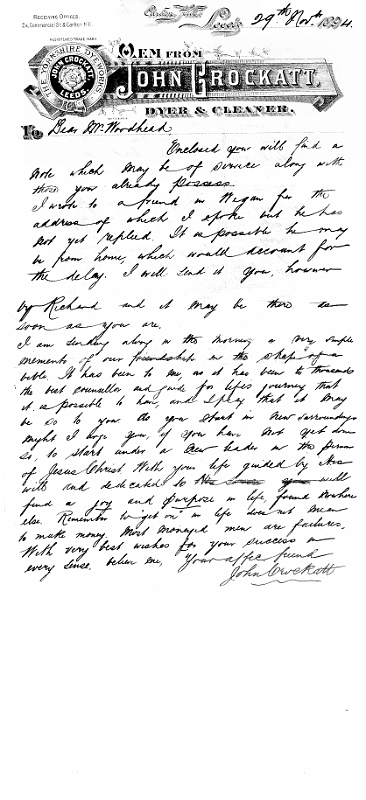 RECEIVING OFFICES.
24, Commercial St & Carlton Hill.
Leeds 29th Novr 1894.
REGISTERED TRADE MARK
THE YORKSHIRE DYEWORKS
JOHN CROCKATT,
LEEDS.
MEM FROM
JOHN CROCKATT,
DYER & CLEANER.
To Dear Mr Woodhead
Enclosed you will find a
note which may be of service along with
those you already possess.
I wrote to a friend in Wigan for the
address of which I spoke but he has
not yet replied. It is possible he may
be from home, which would account for
the delay. I will send it you, however
by Richard and it may be there as
soon as you are.
I am sending along in the morning a very simple
memento of our friendship in the shape of a
bible. It has been to me, as it has been to thousands
the best counsellor and guide for life's journey that
it is possible to have, and I pray that it may
be so to you. As you start in new surroundings
might I urge you, if you have not yet done
so, to start under a new leader in the person
of Jesus Christ. With your life guided by His
will and dedicated to will
find a joy and purpose in life found nowhere
else. Remember to "get on" in life does not mean
to make money. Most managed men are failures.
With very best wishes for your success in
every sense, believe me, Your affec friend
John Crockatt